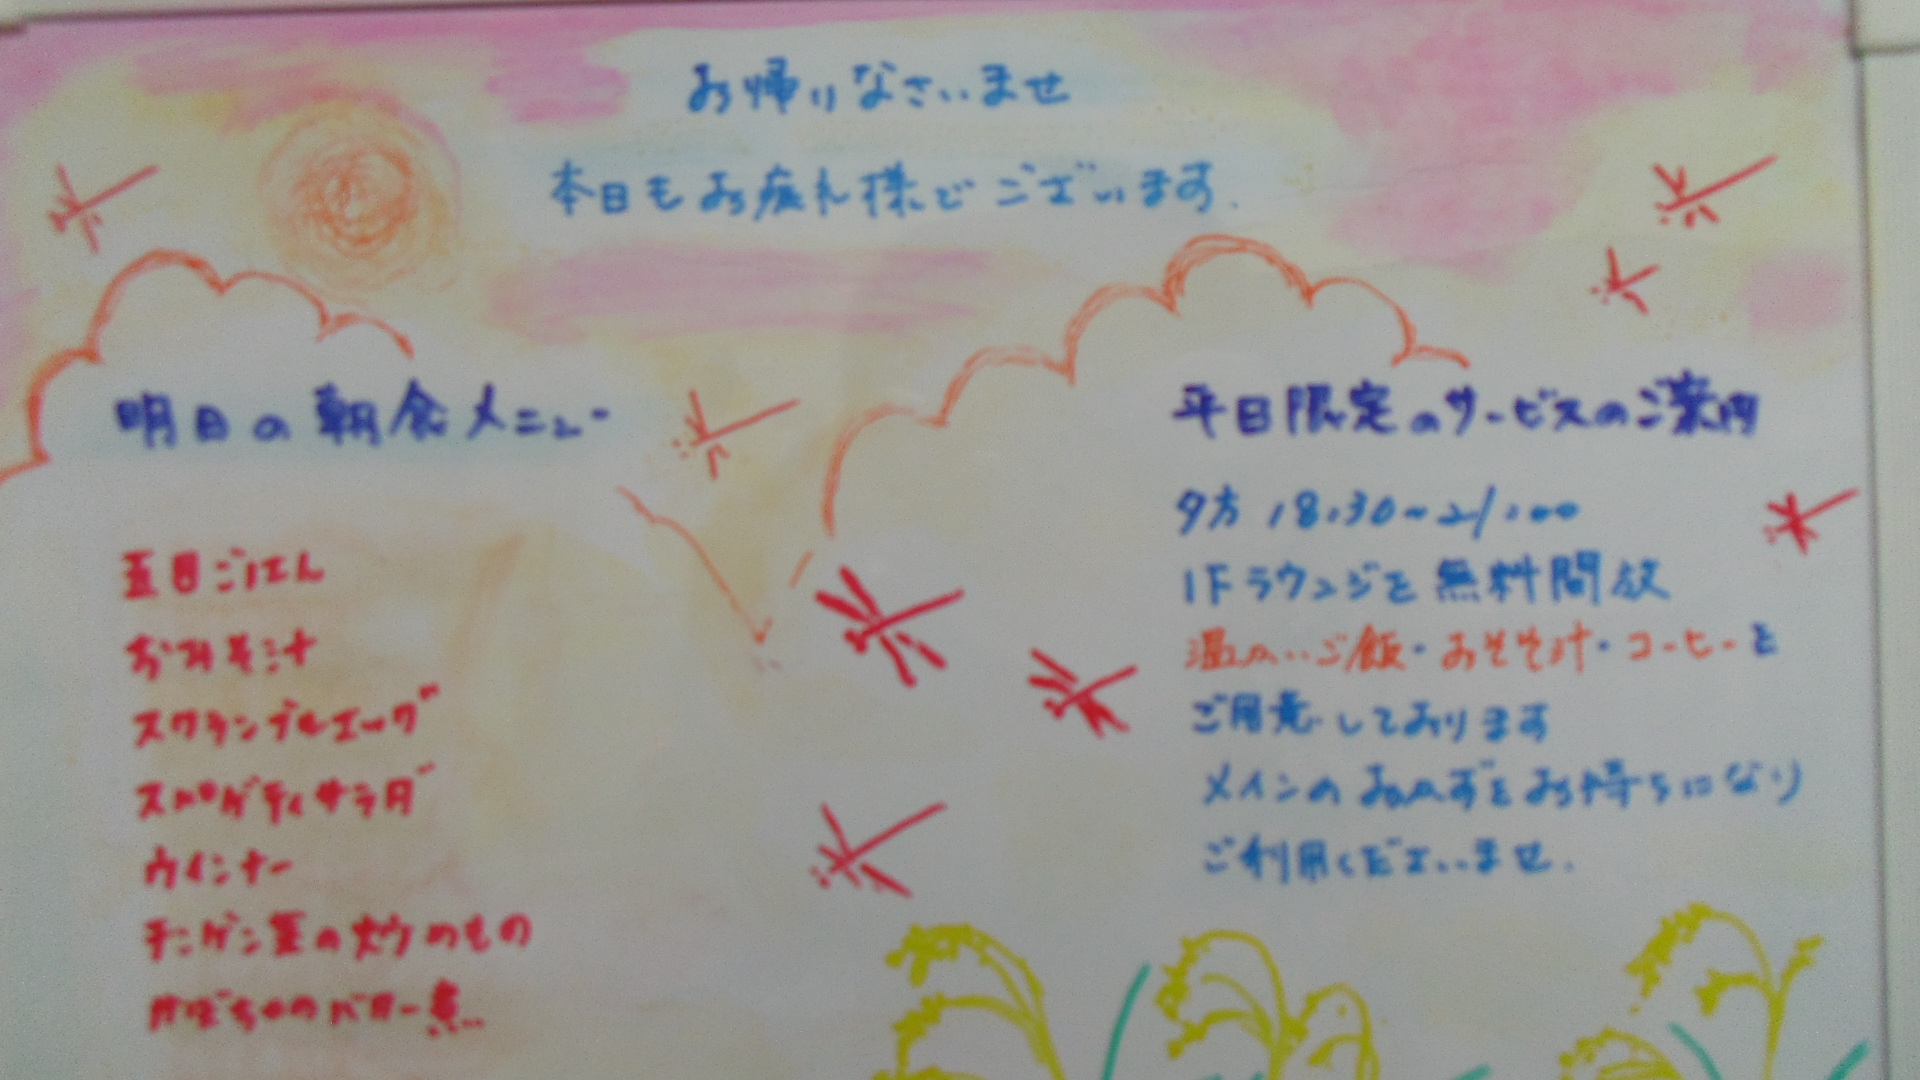 お帰りなさいませ
本日もお疲れ様でございます.
明日の朝食メニュー
五目ごはん
おみそ汁
スクランブルエッグ
スパゲティサラダ
ウインナー
チンゲン菜の炒めもの
かぼちゃのバター煮
平日限定のサービスのご案内
夕方 18:30~21:00
1Fラウンジを無料開放
温かいご飯・おみそ汁・コーヒーを
ご用意しております
メインのおかずをお持ちになり
ご利用くださいませ.